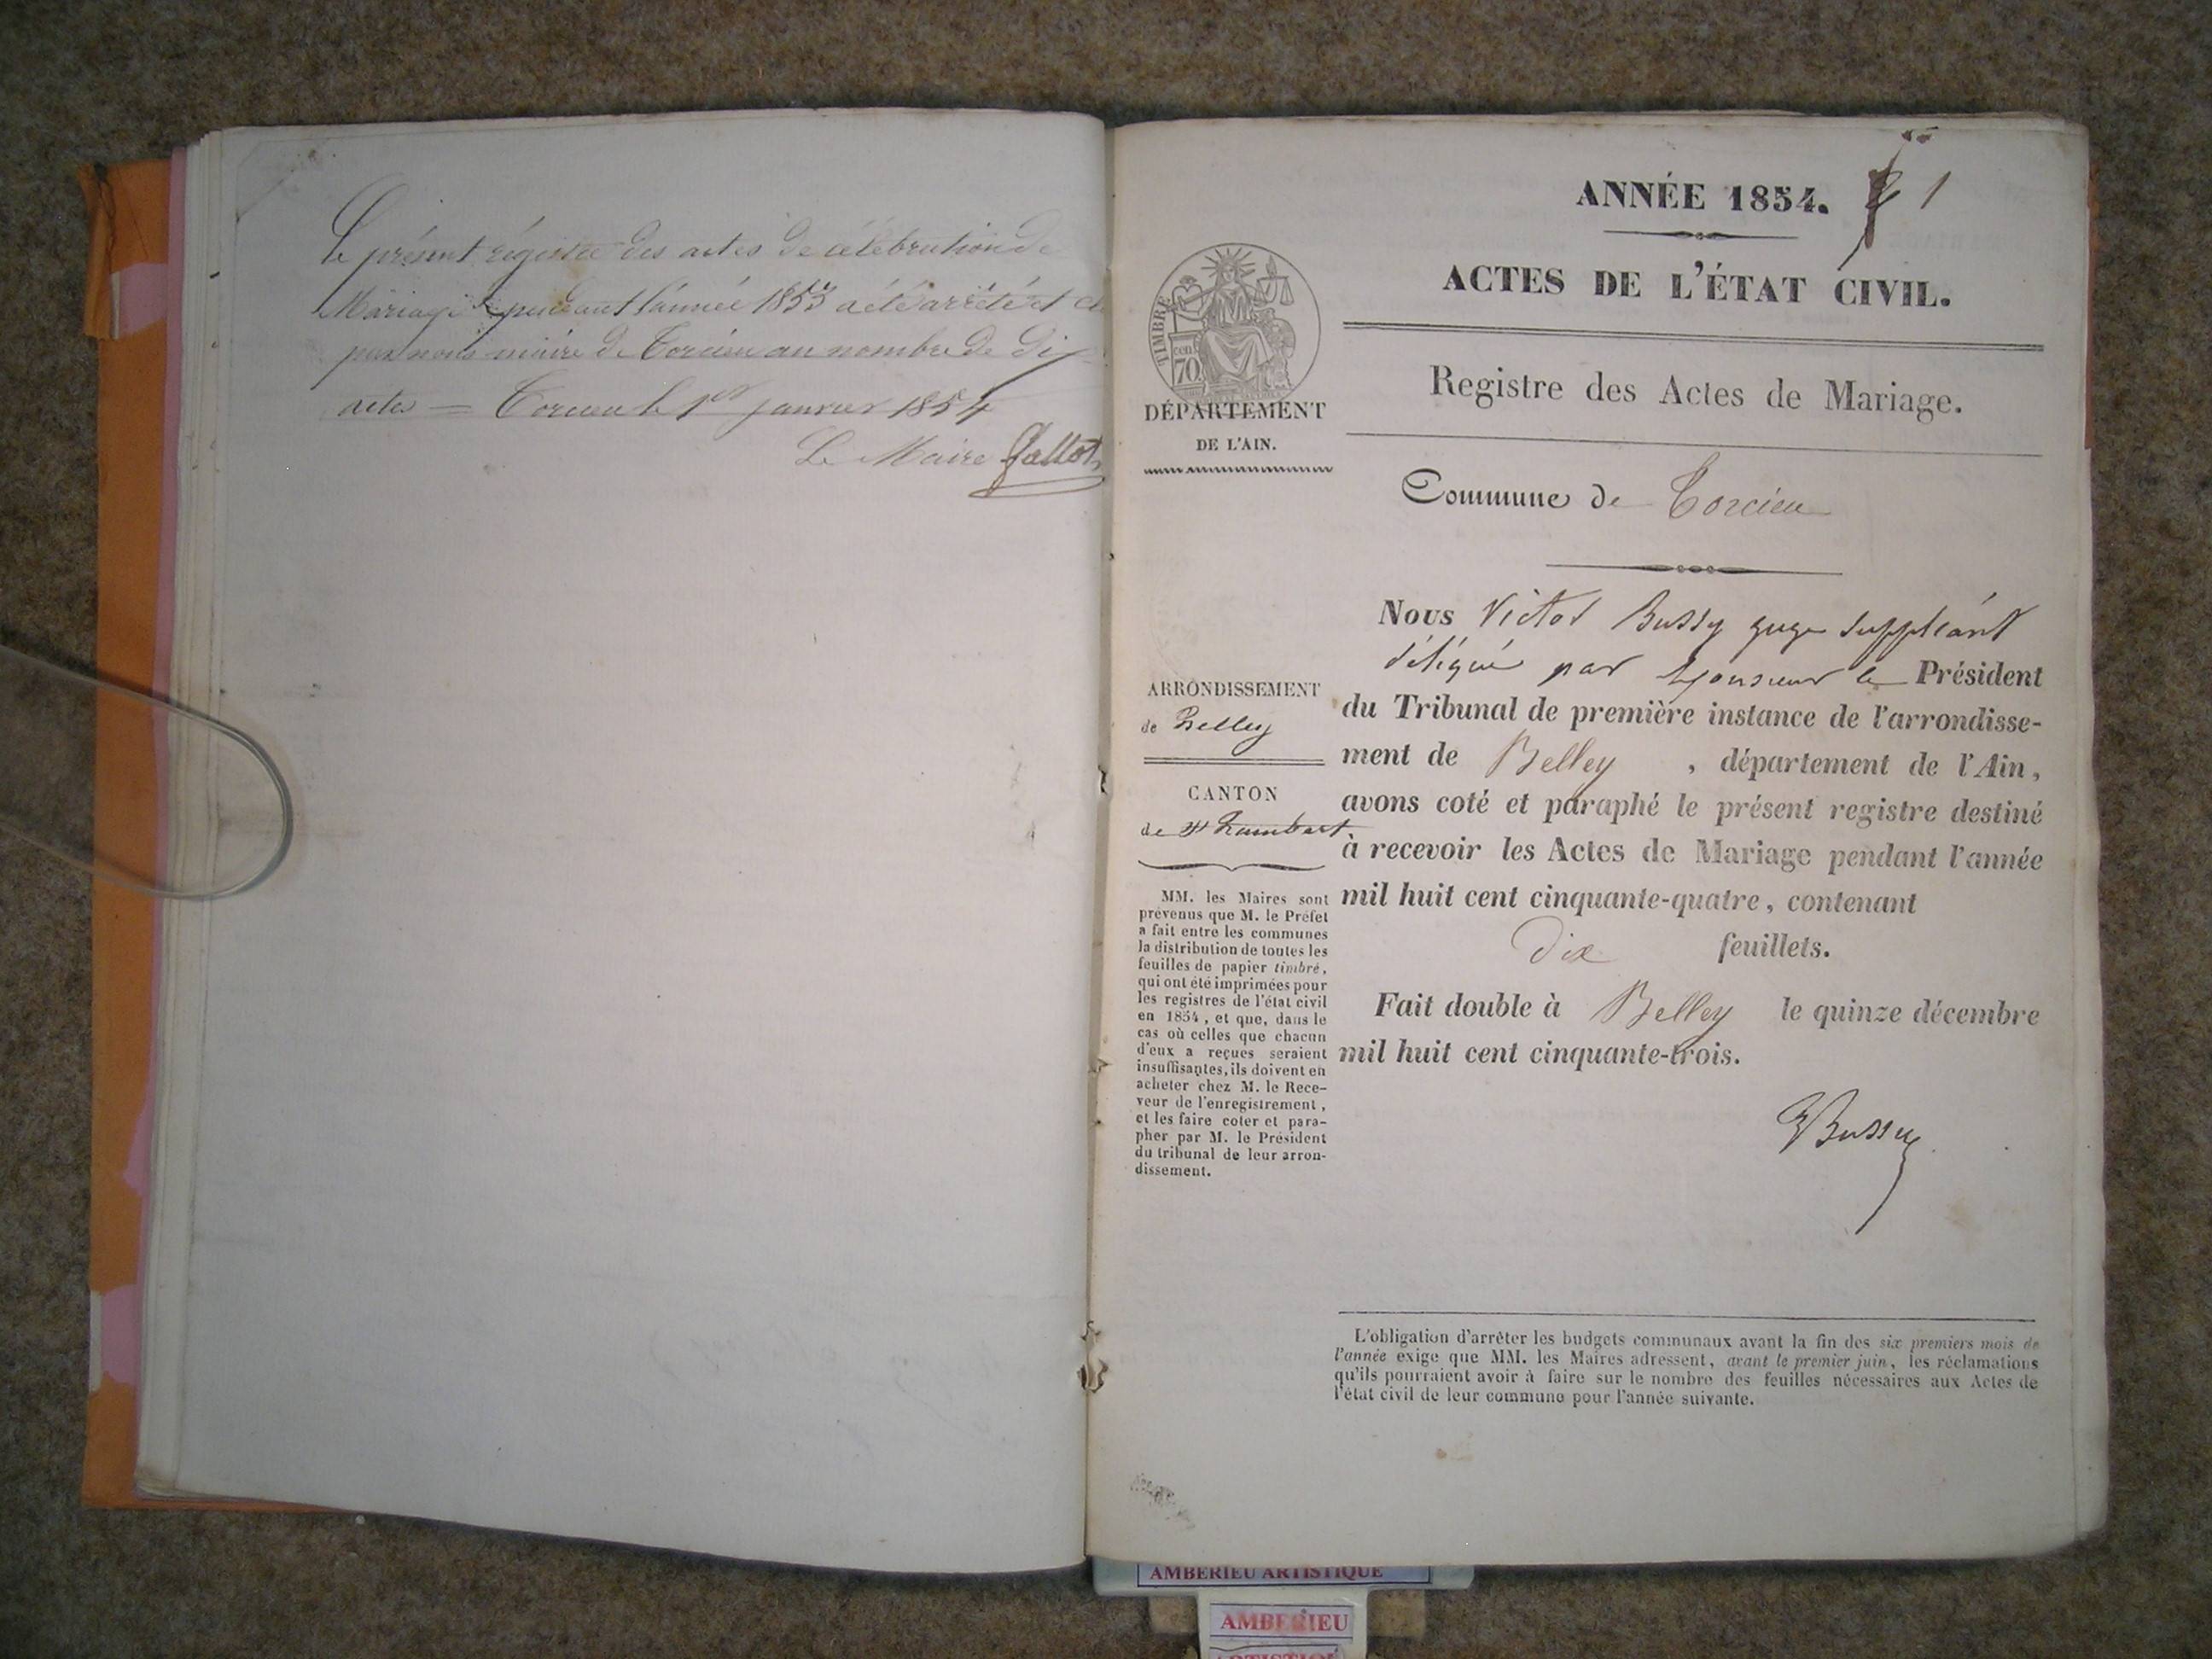 Le présent régistre des actes de célébration de
Mariage pendant l'année 1853 a été arrêté et cl
par nous maire de Torcieu au nombre de dix
actes = Torcieu le 1er janvier 1854
Le Maire Gallot
ANNÉE 1854. 1
ACTES DE L'ÉTAT CIVIL.
TIMBRE
cen 70
Registre des Actes de Mariage.
DÉPARTEMENT
DE L'AIN.
Commune de Torcieu
ARRONDISSEMENT
de Belley
CANTON
de St Rambert
MM. les Maires sont
prévenus que M. le Préfet
a fait entre les communes
la distribution de toutes les
feuilles de papier timbré,
qui ont été imprimées pour
les registres de l'état civil
en 1854, et que, dans le
cas où celles que chacun
d'eux a reçues seraient
insuffisantes, ils doivent en
acheter chez M. le Rece-
veur de l'enregistrement,
et les faire coter et para-
pher par M. le Président
du tribunal de leur arron-
dissement.
Nous Victor Bussy juge suppléant
délégué par Monsieur le Président
du Tribunal de première instance de l'arrondisse-
ment de Belley , département de l'Ain,
avons coté et paraphé le présent registre destiné
à recevoir les Actes de Mariage pendant l'année
mil huit cent cinquante-quatre, contenant
dix feuillets.
Fait double à Belley le quinze décembre
mil huit cent cinquante-trois.
VBussy
L'obligation d'arrêter les budgets communaux avant la fin des six premiers mois de
l'année exige que MM. les Maires adressent, avant le premier juin, les réclamations
qu'ils pourraient avoir à faire sur le nombre des feuilles nécessaires aux Actes de
l'état civil de leur commune pour l'année suivante.
AMBERIEU ARTISTIQUE
AMBERIEU
ARTISTIQUE